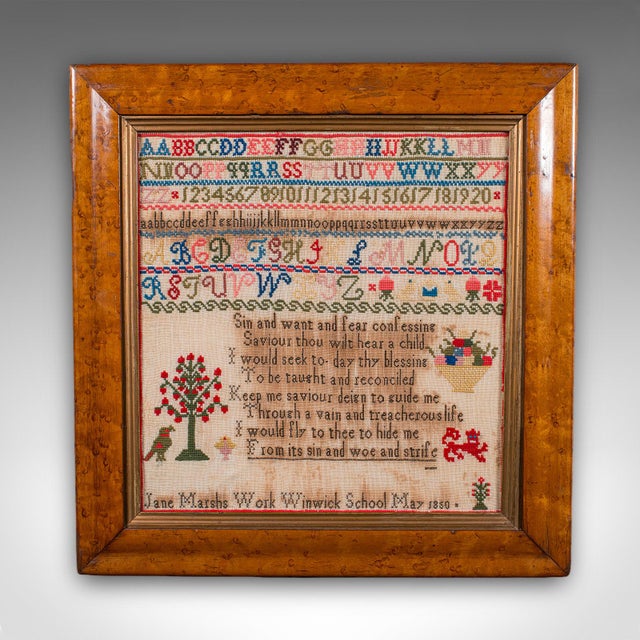 AABBCCDDEEFFGGHHIIJJKKLLMM
NNOOPPqqRRSS UUVVWWXXYY
ZZ 1234567891011121314151617181920
aabbccddeeffgghhiijjkkllmmnnooppqqrrssttuuvvwwxxyyzz
ABCDEFGHI LMNOPQ
RSTUVW YZ
Sin and want and fear confessing
Saviour thou wilt hear a child
I would seek to-day thy blessing
To be taught and reconciled
Keep me saviour deign to guide me
Through a vain and treacherous life
I would fly to thee to hide me
From its sin and woe and strife
Jane Marshs Work Winwick School May 1850